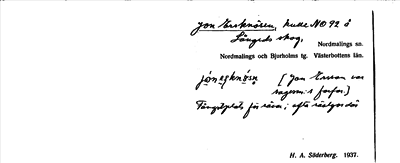 Jon Ersknösen, kulle NO 92 å
Långeds skog,
Nordmalings sn.
Nordmalings och Bjurholms tg. Västerbottens län.
[Jon Ersson var
sagesm:s farfar.]
Fångstplats för rävar; ofta
H. A. Söderberg. 1937.